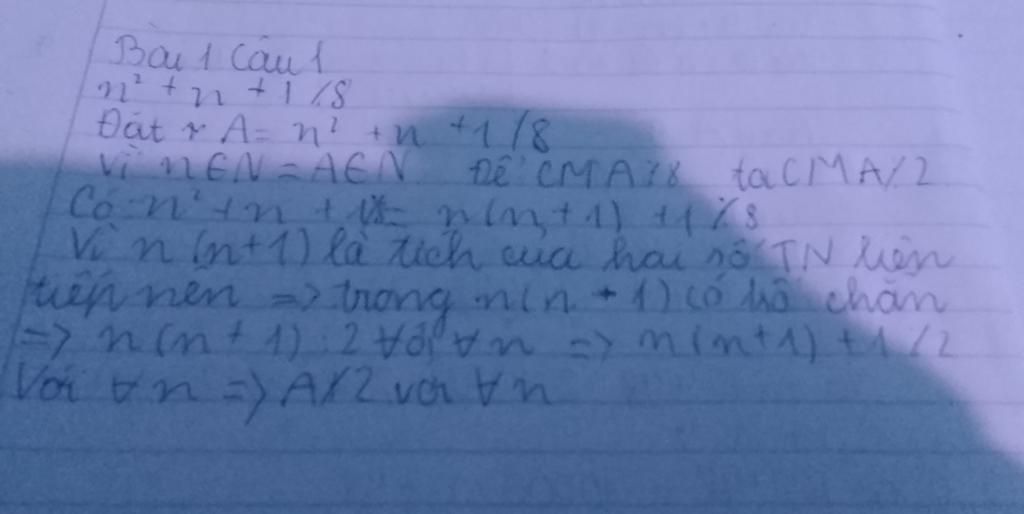 Bài 1 Câu 1
n² + n + 1 ⋮̸ 8
Đặt A = n² + n + 1 ⋮̸ 8
Vì n∈N = A∈N Để CM A ⋮̸ 8 ta CM A ⋮̸ 2
Có n² + n + 1 = n(n+1) + 1 ⋮̸ 8
Vì n(n+1) là tích của hai số TN liên
tiếp nên => trong n(n+1) có số chẵn
=> n(n+1) ⋮ 2 Với ∀n => n(n+1) + 1 ⋮̸ 2
Với ∀n => A ⋮̸ 2 với ∀n